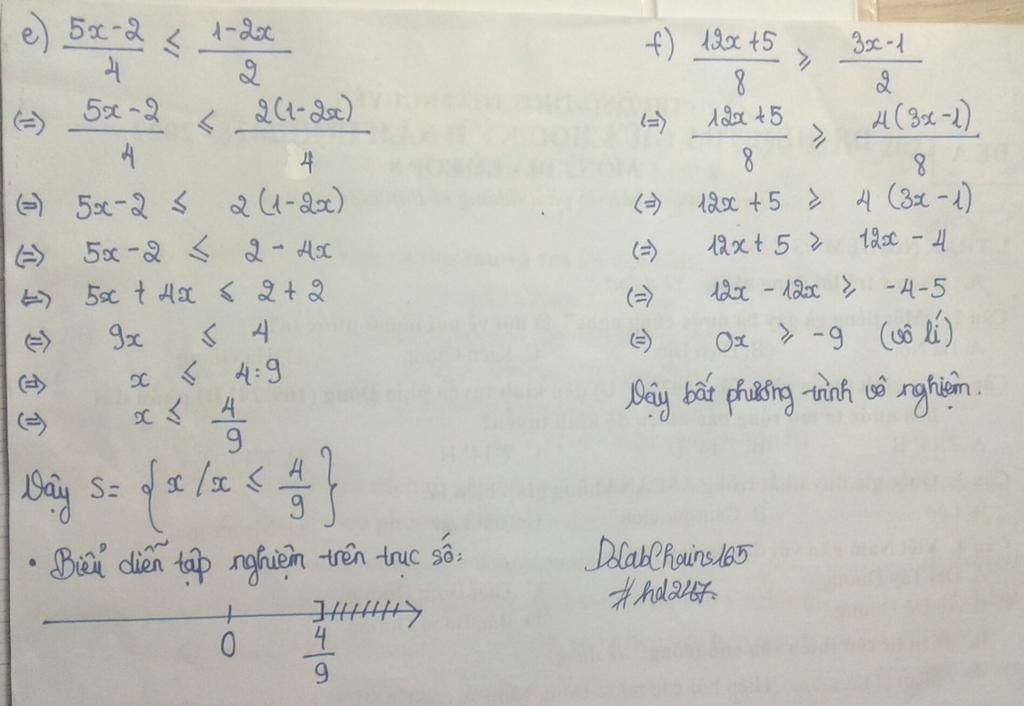 e) (5x-2)/4 ≤ (1-2x)/2
(=) (5x-2)/4 ≤ 2(1-2x)/4
(=) 5x-2 ≤ 2(1-2x)
(=) 5x-2 ≤ 2-4x
(=) 5x + 4x ≤ 2+2
(=) 9x ≤ 4
(=) x ≤ 4:9
(=) x ≤ 4/9
Vậy S= {x/x ≤ 4/9}
• Biểu diễn tập nghiệm trên trục số:
0 4/9
f) (12x+5)/8 ≥ (3x-1)/2
(=) (12x+5)/8 ≥ 4(3x-1)/8
(=) 12x+5 ≥ 4(3x-1)
(=) 12x+5 ≥ 12x-4
(=) 12x-12x ≥ -4-5
(=) 0x ≥ -9 (vô lí)
Vậy bất phương trình vô nghiệm.
#hd247.